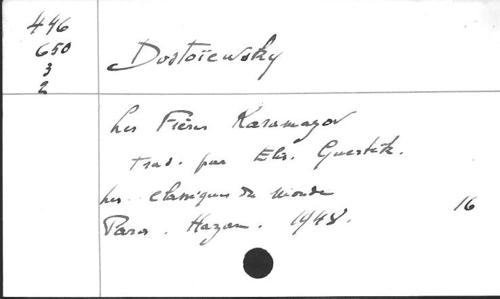 446
650
3
2
Dostoïewsky
Les Frères Karamazov
Trad. par Elis. Guertik.
Les classiques du monde
Paris. Hazan. 1948.
16